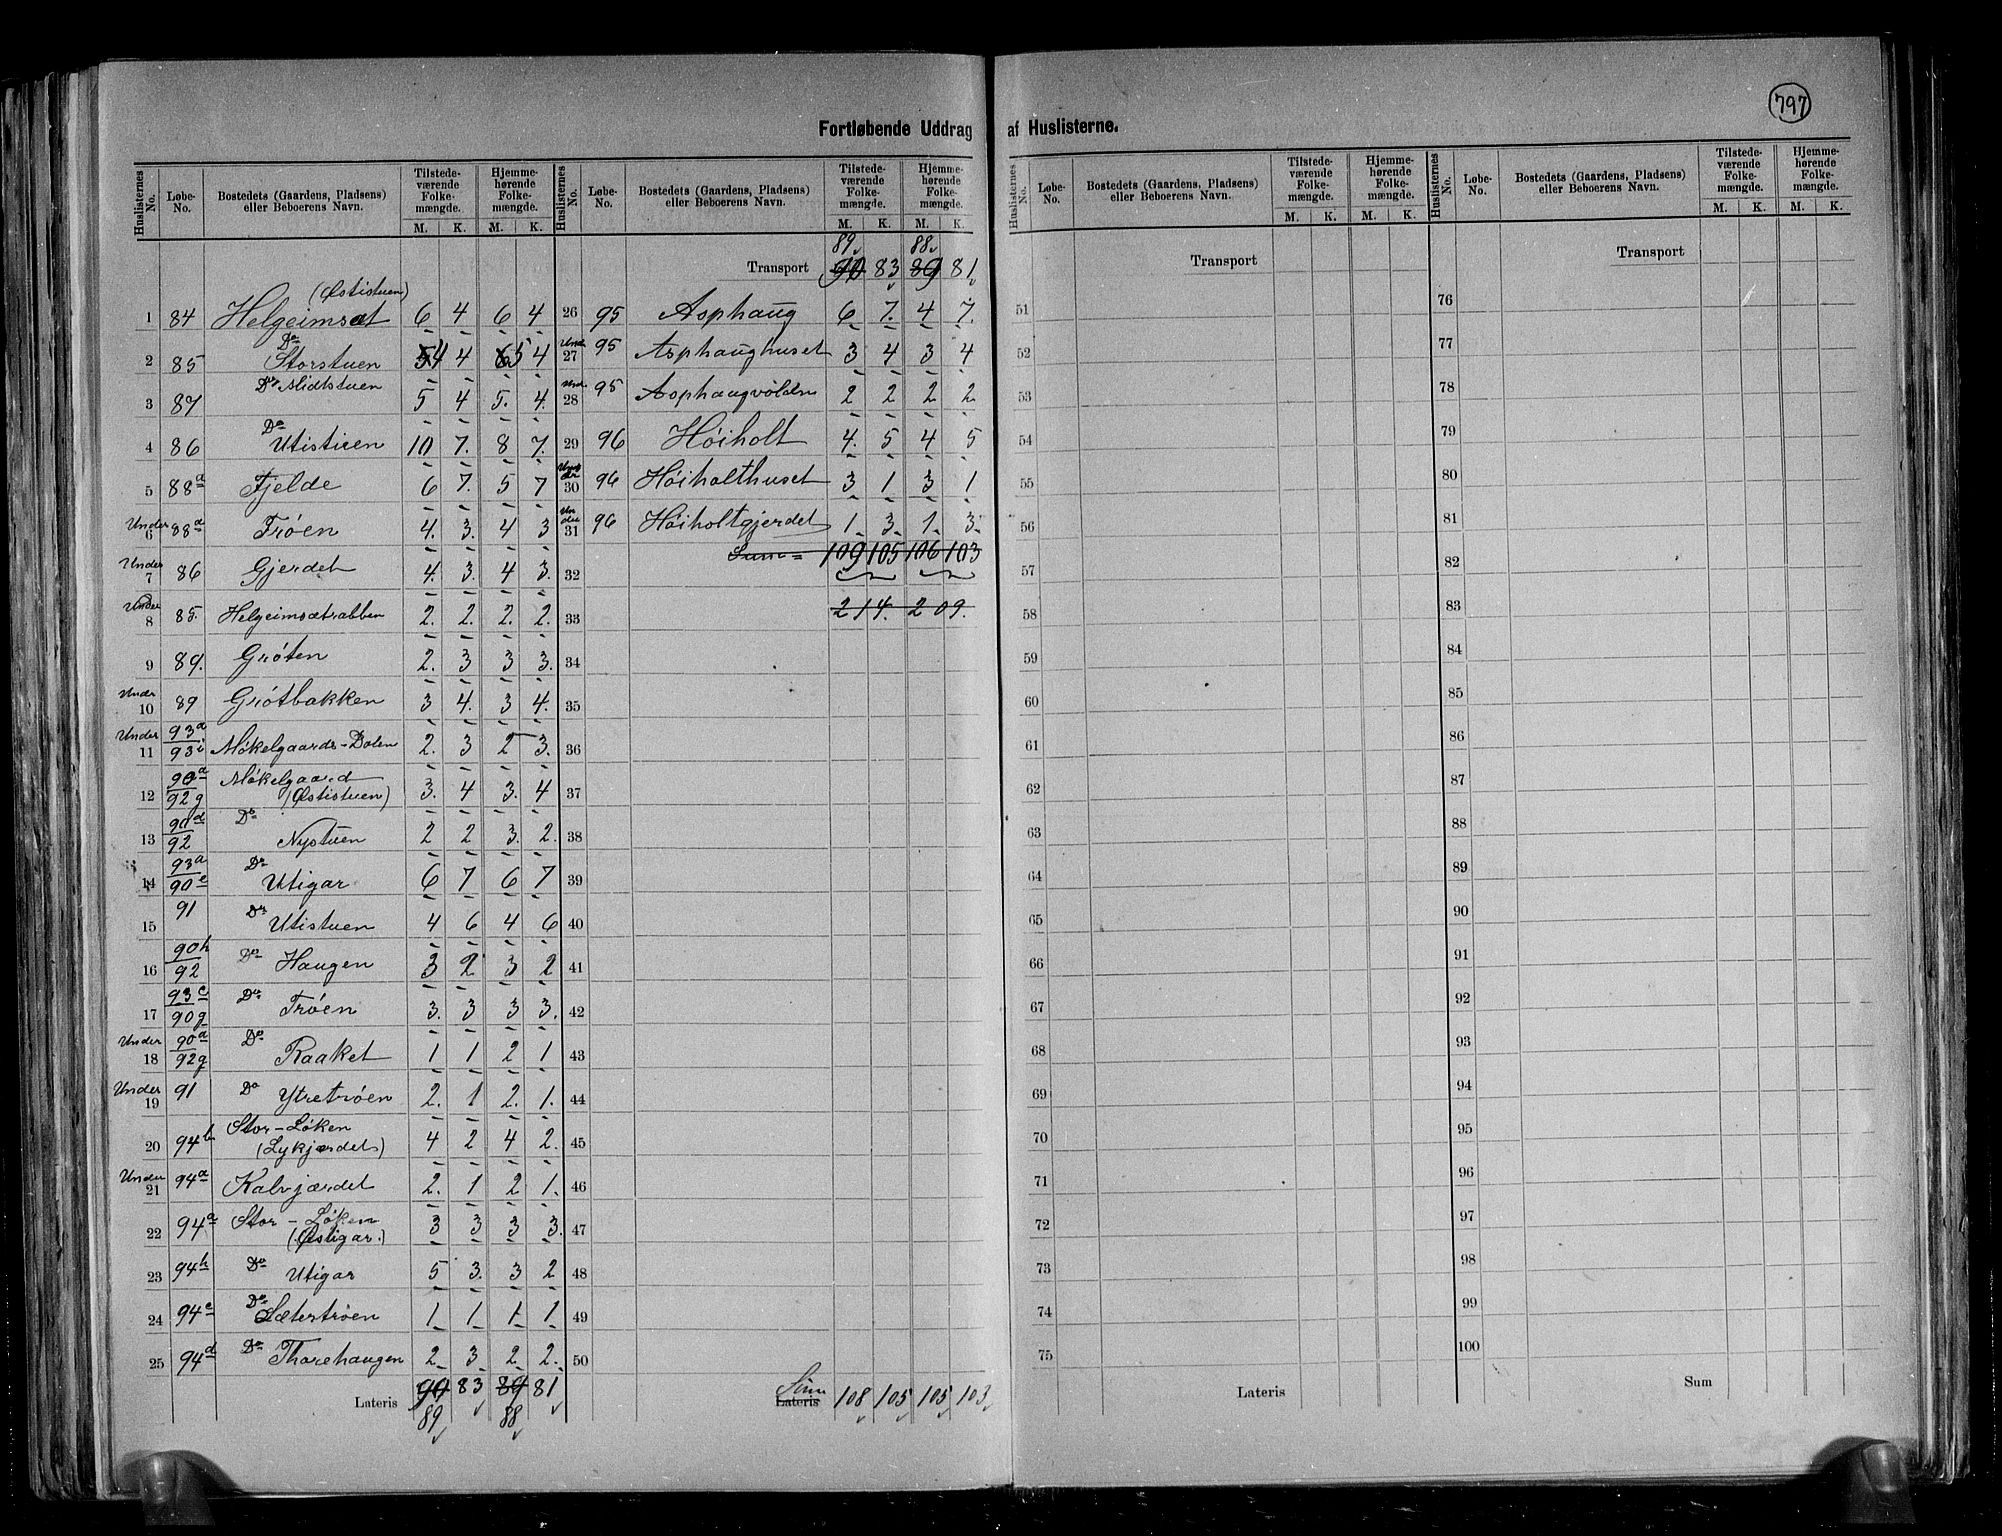 797
Fortløbende Uddrag af Huslisterne.
Huslisternes No. | Løbe-No. | Bostedets (Gaardens, Pladsens) eller Beboerens Navn. | Tilstedeværende Folkemængde. M. K. | Hjemmehørende Folkemængde. M. K.
1 84 Helgeimsæt (Østistuen) 6 4 6 4
2 85 Do Storstuen 4 4 5 4
3 87 Do Midtstuen 5 4 5. 4.
4 86 Do Utistuen 10 7. 8 7.
5 88a Fjelde 6 7. 5 7
Under 6 88a Trøen 4. 3. 4 3
Under 7 86 Gjerdet 4. 3. 4 3.
Under 8 85. Helgeimsætrabben 2. 2. 2. 2.
9 89. Grøten 2. 3 3 3.
Under 10 89 Grøtbakken 3 4. 3 4.
Under 11 93a 93i Møkelgaards-Dalen 2. 3 2 3.
12 90a 92g Møkelgaard (Østistuen) 3. 4 3. 4
13 90d 92 Do Nystuen 2 2 3. 2.
14 93a 90e Do Utigar 6 7 6 7
15 91 Do Utistuen 4 6 4 6
16 90h 92 Do Haugen 3 2 3 2
17 93c 90g Do Trøen 3. 3 3 3.
Under 18 90a 92g Do Raaket 1 1 2 1
Under 19 91 Do Ytretrøen 2. 1 2. 1.
20 94b Stor-Løken (Lykjærdet) 4 2 4 2.
Under 21 94a Kalvjærdet 2. 1 2 1.
22 94a Stor-Løken (Østigar.) 3 3 3 3.
23 94h Do Utigar 5 3. 3 2
24 94c Do Sætertrøen 1 1 1 1
25 94d Do Thorehaugen 2 3 2 2.
Lateris 90 83 89 81
89 88
Huslisternes No. | Løbe-No. | Bostedets (Gaardens, Pladsens) eller Beboerens Navn. | Tilstedeværende Folkemængde. M. K. | Hjemmehørende Folkemængde. M. K.
89 88
Transport 90 83 89 81
26 95 Asphaug 6 7. 4 7.
Under 27 95 Asphaughuset 3 4 3 4
Under 28 95 Asphaugvolden 2 2 2 2
29 96 Høiholt 4. 5 4 5
Under 30 96 Høiholthuset 3 1 3 1
Under 31 96 Høiholtgjerdet 1. 3. 1. 3.
Sum = 109 105 106 103
32
33 214. 209.
34
35
36
37
38
39
40
41
42
43
44
45
46
47
48
49
50
Sum
Lateris 108 105 105 103
Huslisternes No. | Løbe-No. | Bostedets (Gaardens, Pladsens) eller Beboerens Navn. | Tilstedeværende Folkemængde. M. K. | Hjemmehørende Folkemængde. M. K.
Transport
51
52
53
54
55
56
57
58
59
60
61
62
63
64
65
66
67
68
69
70
71
72
73
74
75
Lateris
Huslisternes No. | Løbe-No. | Bostedets (Gaardens, Pladsens) eller Beboerens Navn. | Tilstedeværende Folkemængde. M. K. | Hjemmehørende Folkemængde. M. K.
Transport
76
77
78
79
80
81
82
83
84
85
86
87
88
89
90
91
92
93
94
95
96
97
98
99
100
Sum